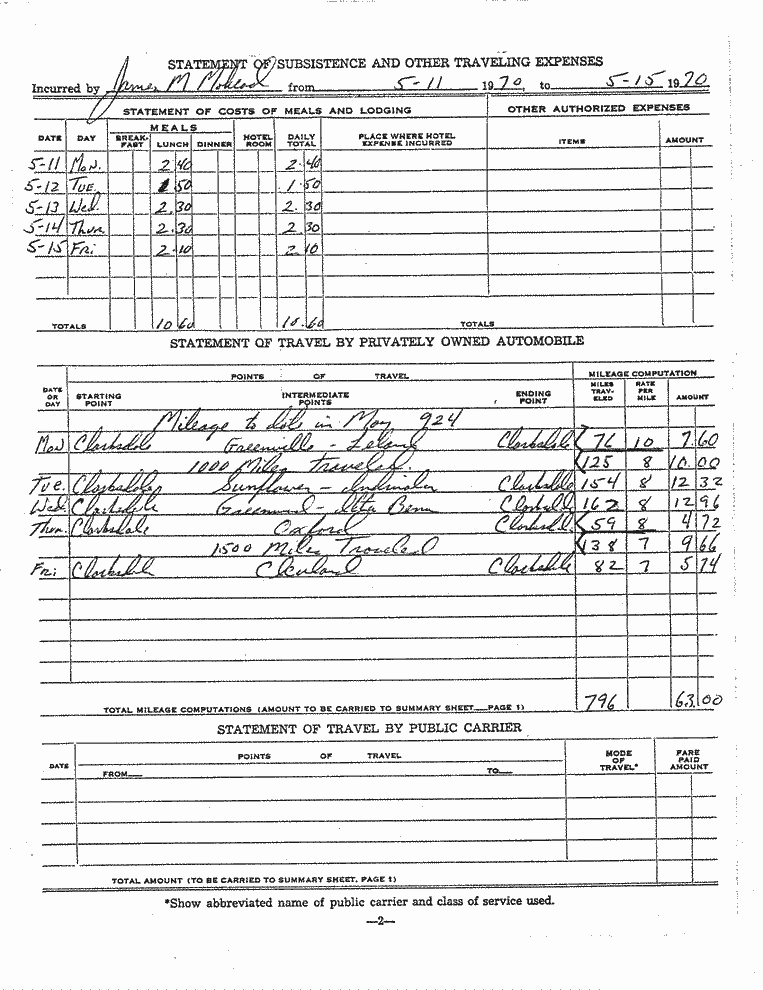 STATEMENT OF SUBSISTENCE AND OTHER TRAVELING EXPENSES
Incurred by James M from 5-11 1970, to 5-15 1970
STATEMENT OF COSTS OF MEALS AND LODGING OTHER AUTHORIZED EXPENSES
DATE DAY MEALS BREAK-FAST LUNCH DINNER HOTEL ROOM DAILY TOTAL PLACE WHERE HOTEL EXPENSE INCURRED ITEMS AMOUNT
5-11 Mon. 2 40 2.40
5-12 Tue. 1 50 1.50
5-13 Wed. 2.30 2.30
5-14 Thur. 2.30 2 30
5-15 Fri 2.10 2 10
TOTALS 10 60 10.60 TOTALS
STATEMENT OF TRAVEL BY PRIVATELY OWNED AUTOMOBILE
POINTS OF TRAVEL MILEAGE COMPUTATION
DATE OR DAY STARTING POINT INTERMEDIATE POINTS ENDING POINT MILES TRAV-ELED RATE PER MILE AMOUNT
Mileage to date in May 924
Mon Clarksdale Greenville - Leland Clarksdale 76 10 7.60
1000 Miles Traveled. 125 8 10.00
Tue. Clarksdale Sunflower - Indianola Clarksdale 154 8 12 32
Wed. Clarksdale Greenwood - Itta Bena Clarksdale 162 8 12 96
Thur. Clarksdale Oxford Clarksdale 59 8 4 72
1500 Miles Traveled 138 7 9 66
Fri Clarksdale Cleveland Clarksdale 82 7 5 74
TOTAL MILEAGE COMPUTATIONS (AMOUNT TO BE CARRIED TO SUMMARY SHEET PAGE 1) 796 63.00
STATEMENT OF TRAVEL BY PUBLIC CARRIER
DATE POINTS OF TRAVEL MODE OF TRAVEL* FARE PAID AMOUNT
FROM TO
TOTAL AMOUNT (TO BE CARRIED TO SUMMARY SHEET, PAGE 1)
*Show abbreviated name of public carrier and class of service used.
—2—